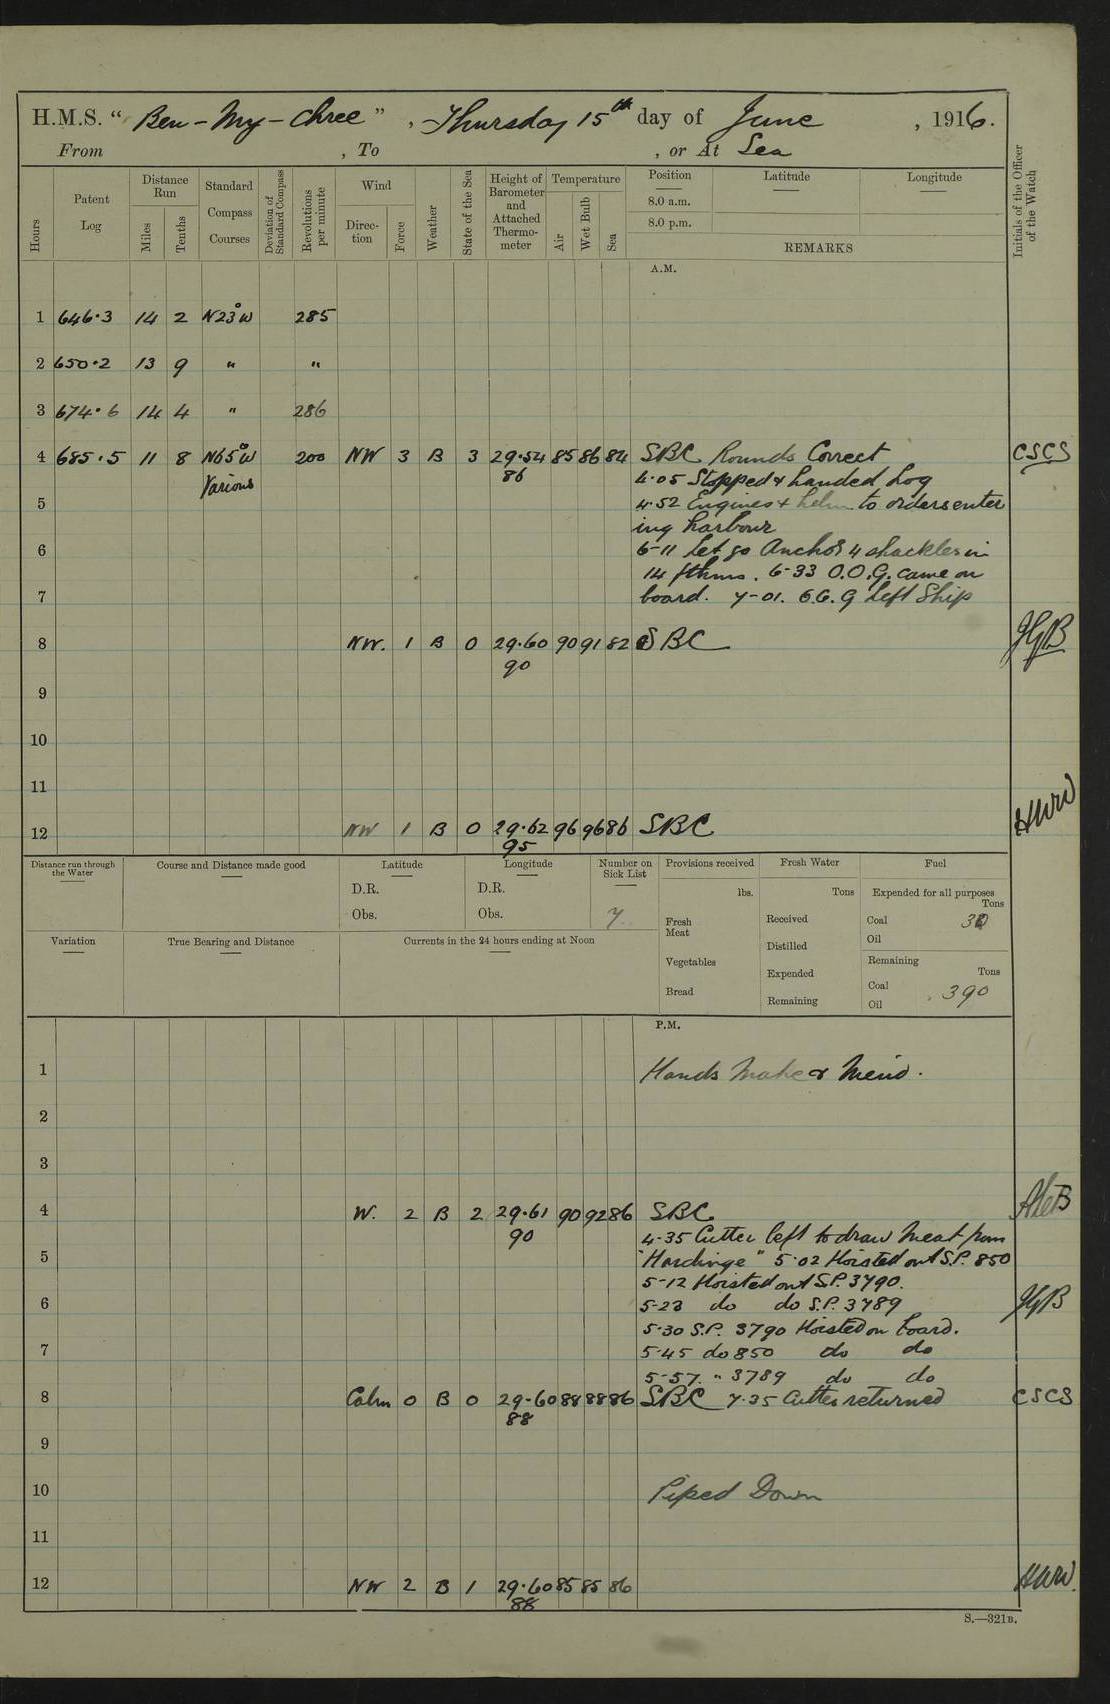 H.M.S. " Ben-My-Chree " , Thursday 15th day of June , 1916.
From , To , or At Sea
Hours
Patent Log
Distance Run
Miles
Tenths
Standard Compass Courses
Deviation of Standard Compass
Revolutions per minute
Wind
Direction
Force
Weather
State of the Sea
Height of Barometer and Attached Thermometer
Temperature
Air
Wet Bulb
Sea
Position
8.0 a.m.
8.0 p.m.
Latitude
Longitude
REMARKS
Initials of the Officer of the Watch
A.M.
1 646.3 14 2 N23°W 285
2 650.2 13 9 " "
3 674.6 14 4 " 286
4 685.5 11 8 N65°W 200 NW 3 B 3 29.54 85 86 84 SBC Rounds Correct CSCS
Various 86 4.05 Stopped & handed Log
5 4.52 Engines & helm to orders enter
ing harbour
6 6-11 Let go Anchor 4 shackles in
14 fthms. 6-33 O.O.G. came on
7 board. 7-01. O.O.G left Ship
8 NW. 1 B 0 29.60 90 91 82 SBC JGB
90
9
10
11
12 NW 1 B 0 29.62 96 96 86 SBC HWW
95
Distance run through the Water
Course and Distance made good
Latitude
D.R.
Obs.
Longitude
D.R.
Obs.
Number on Sick List
7
Provisions received
lbs.
Fresh Meat
Vegetables
Bread
Fresh Water
Tons
Received
Distilled
Expended
Remaining
Fuel
Expended for all purposes
Tons
Coal 30
Oil
Remaining
Tons
Coal 390
Oil
Variation
True Bearing and Distance
Currents in the 24 hours ending at Noon
P.M.
1 Hands Make & Mend.
2
3
4 W. 2 B 2 29.61 90 92 86 SBC
90 4.35 Cutter left to draw Meat from
5 "Hardinge" 5.02 Hoisted out S.P. 850
5-12 Hoisted out S.P. 3790.
6 5-23 do do S.P. 3789 JGB
5.30 S.P. 3790 Hoisted on board.
7 5.45 do 850 do do
5-57. " 3789 do do
8 Calm 0 B 0 29.60 88 88 86 SBC 7.35 Cutter returned CSCS
88
9
10 Piped Down
11
12 NW 2 B 1 29.60 85 85 86 HWW.
88
S.—321B.